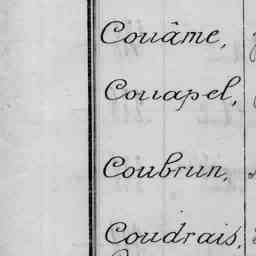 Couâme,
Couapel,
Coubrun,
Coudrais,